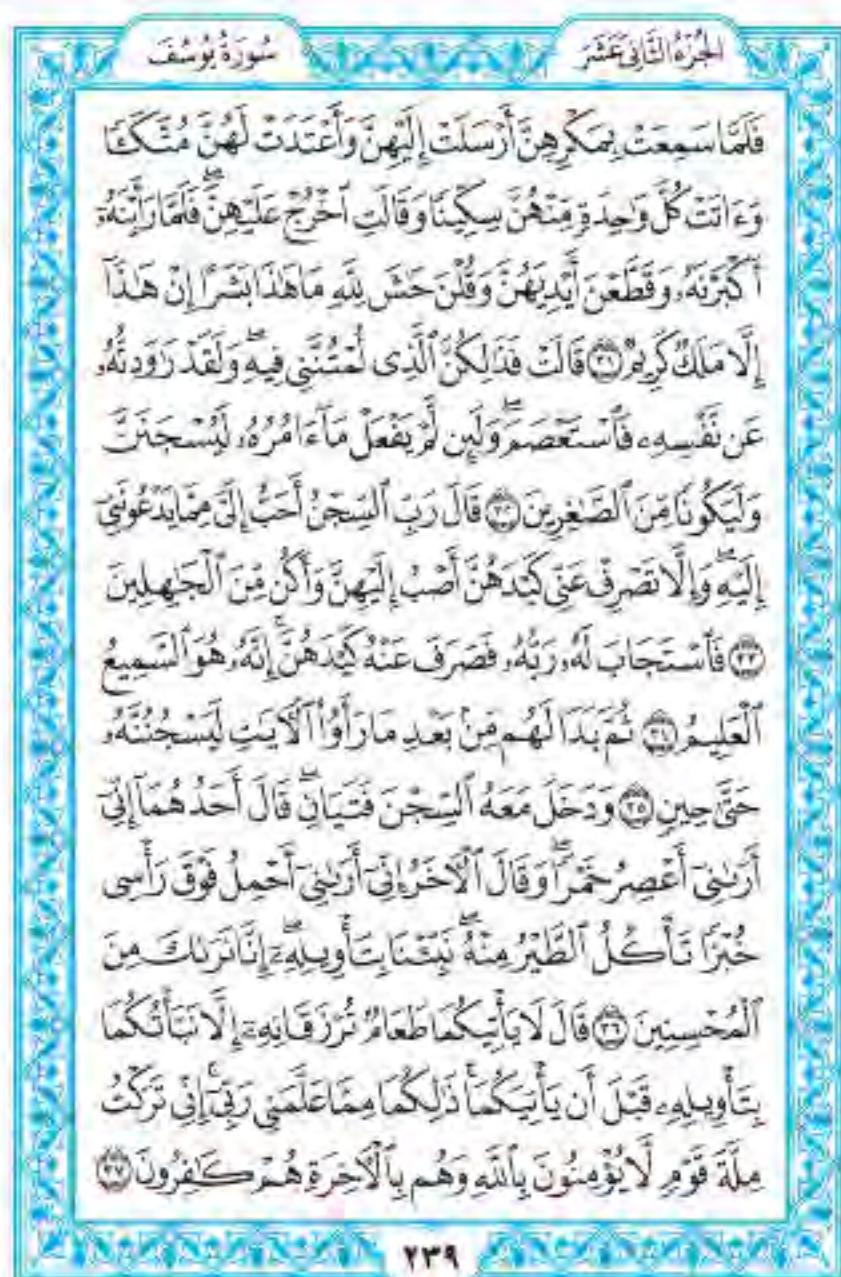 الجُزْءُ الثَّانِي عَشَرَ
سُورَةُ يُوسُفَ
فَلَمَّا سَمِعَتْ بِمَكْرِهِنَّ أَرْسَلَتْ إِلَيْهِنَّ وَأَعْتَدَتْ لَهُنَّ مُتَّكَـًٔا
وَءَاتَتْ كُلَّ وَٰحِدَةٍ مِّنْهُنَّ سِكِّينًا وَقَالَتِ ٱخْرُجْ عَلَيْهِنَّ ۖ فَلَمَّا رَأَيْنَهُۥٓ
أَكْبَرْنَهُۥ وَقَطَّعْنَ أَيْدِيَهُنَّ وَقُلْنَ حَٰشَ لِلَّهِ مَا هَٰذَا بَشَرًا إِنْ هَٰذَآ
إِلَّا مَلَكٌ كَرِيمٌ ٣١ قَالَتْ فَذَٰلِكُنَّ ٱلَّذِى لُمْتُنَّنِى فِيهِ ۖ وَلَقَدْ رَٰوَدتُّهُۥ
عَن نَّفْسِهِۦ فَٱسْتَعْصَمَ ۖ وَلَئِن لَّمْ يَفْعَلْ مَآ ءَامُرُهُۥ لَيُسْجَنَنَّ
وَلَيَكُونًا مِّنَ ٱلصَّٰغِرِينَ ٣٢ قَالَ رَبِّ ٱلسِّجْنُ أَحَبُّ إِلَىَّ مِمَّا يَدْعُونَنِىٓ
إِلَيْهِ ۖ وَإِلَّا تَصْرِفْ عَنِّى كَيْدَهُنَّ أَصْبُ إِلَيْهِنَّ وَأَكُن مِّنَ ٱلْجَٰهِلِينَ
٣٣ فَٱسْتَجَابَ لَهُۥ رَبُّهُۥ فَصَرَفَ عَنْهُ كَيْدَهُنَّ ۚ إِنَّهُۥ هُوَ ٱلسَّمِيعُ
ٱلْعَلِيمُ ٣٤ ثُمَّ بَدَا لَهُم مِّنۢ بَعْدِ مَا رَأَوُا۟ ٱلْءَايَٰتِ لَيَسْجُنُنَّهُۥ
حَتَّىٰ حِينٍ ٣٥ وَدَخَلَ مَعَهُ ٱلسِّجْنَ فَتَيَانِ ۖ قَالَ أَحَدُهُمَآ إِنِّىٓ
أَرَىٰنِىٓ أَعْصِرُ خَمْرًا ۖ وَقَالَ ٱلْءَاخَرُ إِنِّىٓ أَرَىٰنِىٓ أَحْمِلُ فَوْقَ رَأْسِى
خُبْزًا تَأْكُلُ ٱلطَّيْرُ مِنْهُ ۖ نَبِّئْنَا بِتَأْوِيلِهِۦٓ ۖ إِنَّا نَرَىٰكَ مِنَ
ٱلْمُحْسِنِينَ ٣٦ قَالَ لَا يَأْتِيكُمَا طَعَامٌ تُرْزَقَانِهِۦٓ إِلَّا نَبَّأْتُكُمَا
بِتَأْوِيلِهِۦ قَبْلَ أَن يَأْتِيَكُمَا ۚ ذَٰلِكُمَا مِمَّا عَلَّمَنِى رَبِّىٓ ۚ إِنِّى تَرَكْتُ
مِلَّةَ قَوْمٍ لَّا يُؤْمِنُونَ بِٱللَّهِ وَهُم بِٱلْءَاخِرَةِ هُمْ كَٰفِرُونَ ٣٧
٢٣٩